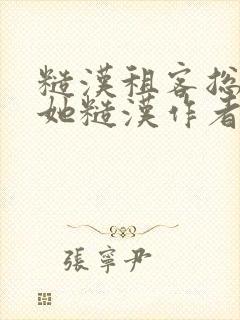 糙漢租客捻
她糙漢作者
張寧尹